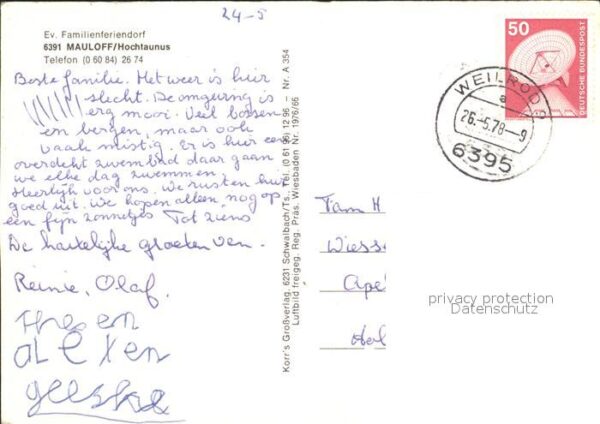 24-5
Ev. Familienferiendorf
6391 MAULOFF/Hochtaunus
Telefon (0 60 84) 26 74
Beste familie. Het weer is hier
slecht. De omgeving is
erg mooi. Veel bossen
en bergen, maar ook
vaak mistig. Er is hier een
overdekt zwembad daar gaan
we elke dag zwemmen.
Heerlijk voor ons. We rusten hier
goed uit. We hopen alleen, nog op
een fijn zonnetje Tot ziens
De hartelijke groeten van.
Reinie, Olaf.
Theo en
aLeXen
geeske
Korr's Großverlag, 6231 Schwalbach/Ts., Tel. (0 61 96) 12 96 – Nr. A 354
Luftbild freigeg. Reg. Präs. Wiesbaden Nr. 1976/66
50
DEUTSCHE BUNDESPOST
WEILROD
a
26.-5.78-9
6395
Fam H
Wiess
Apel
privacy protection
Datenschutz